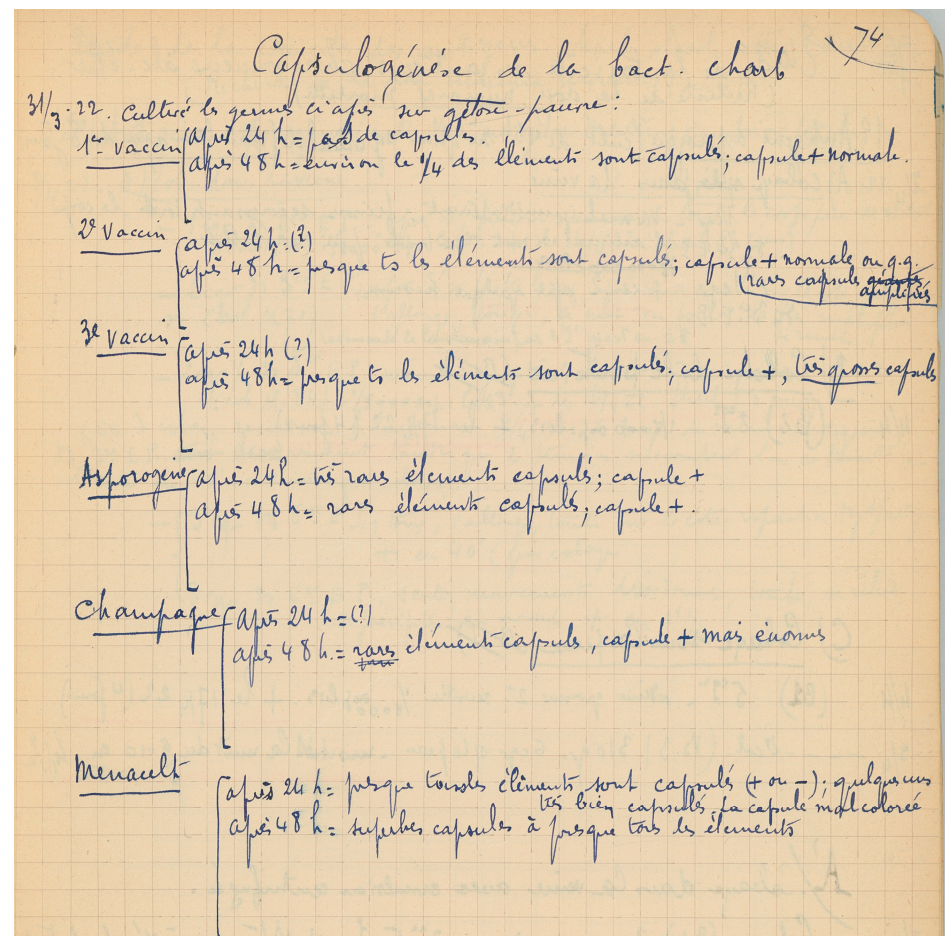 74
Capsulogénèse de la bact. charb
31/3-22. Cultivé les germes ci après sur gélose-pauvre :
1er Vaccin après 24 h = pas de capsules.
après 48 h = environ le 1/4 des éléments sont capsulés; capsule + normale.
2e Vaccin après 24 h = (?)
après 48 h = presque ts les éléments sont capsulés; capsule + normale ou q.q.
rares capsules géantes amplifiés
3e Vaccin après 24 h (?)
après 48 h = presque ts les éléments sont capsulés; capsule +, très grosses capsules
Asporogène après 24 h = très rares éléments capsulés; capsule +
après 48 h = rares éléments capsulés; capsule +.
Champagne après 24 h = (?)
après 48 h. = rares éléments capsulés, capsule + mais énormes
Menault après 24 h = presque tous les éléments sont capsulés (+ ou -); quelques uns
très bien capsulés. La capsule mal colorée
après 48 h = superbes capsules à presque tous les éléments